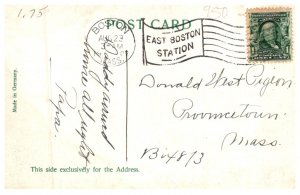 1.75
POST CARD
BOSTON
AUG 23
MASS.
EAST BOSTON
STATION
Made in Germany.
arrived
home all right
Papa.
Donald West
Provincetown
Mass.
Box 813
This side exclusively for the Address.